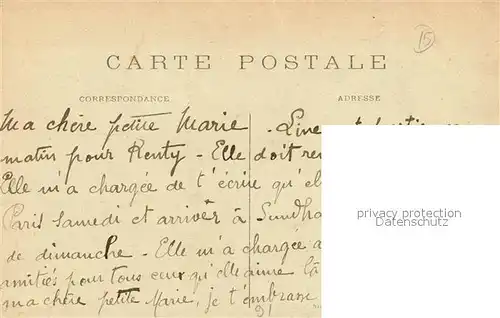 15
CARTE POSTALE
CORRESPONDANCE
ADRESSE
Ma chère petite Marie - Line
matin pour Renty - Elle doit
Elle m'a chargée de t'écrire qu'el
Paris samedi et arriver à
de dimanche - Elle m'a chargée
amitiés pour tous ceux qu'elle aime là
ma chère petite Marie, je t'embrasse
privacy protection
Datenschutz